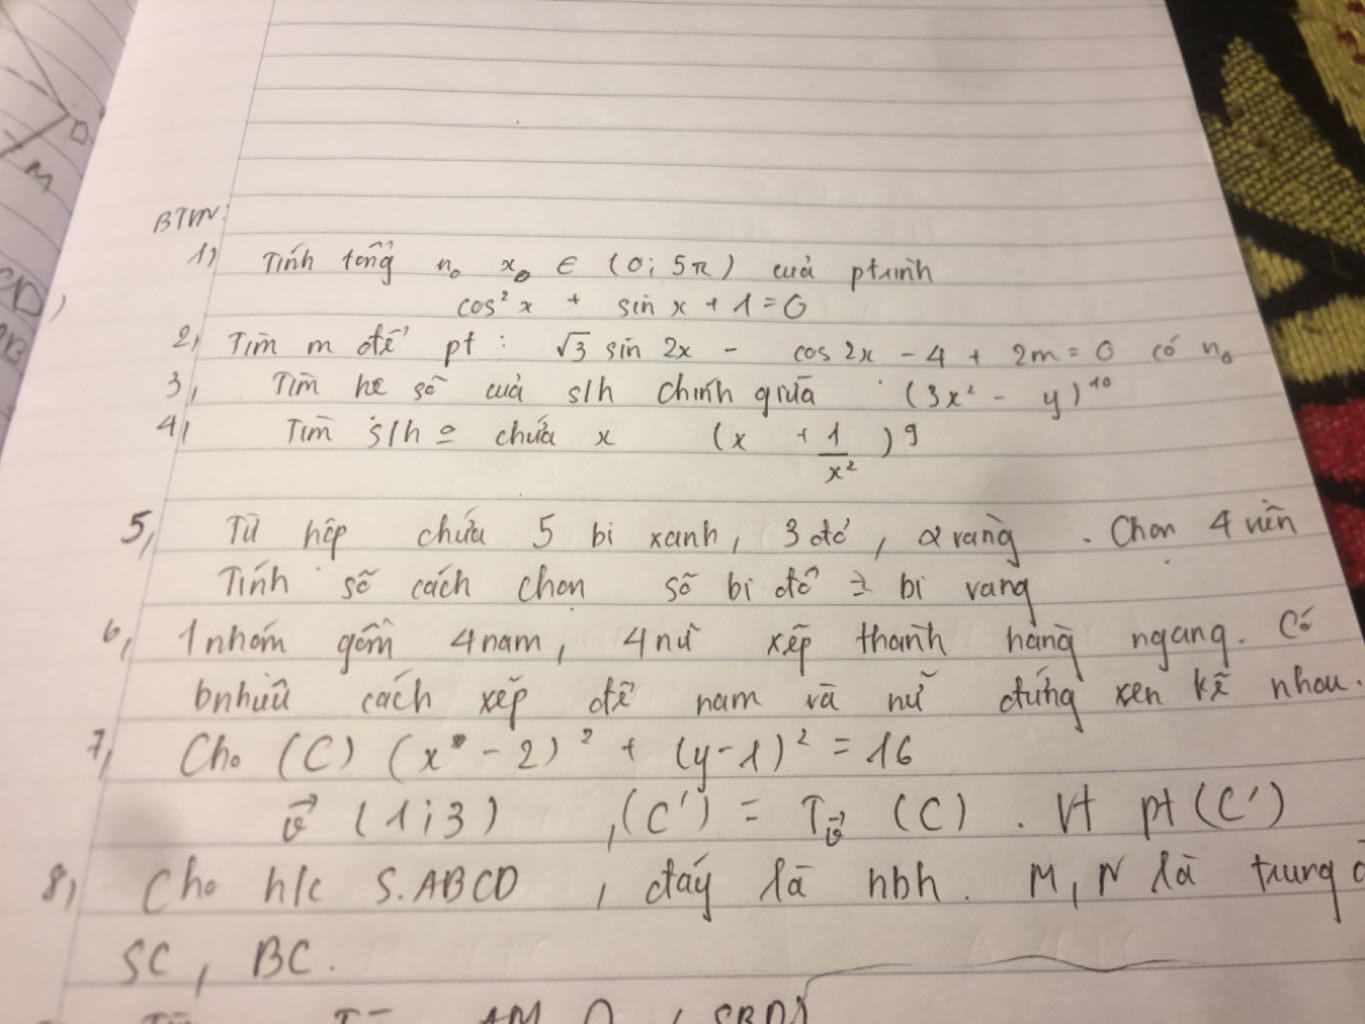 BTVN:
1, Tính tổng n₀ x₀ ∈ (0; 5π) cuả ptrình
cos²x + sin x + 1 = 0
2, Tìm m để pt : √3 sin 2x - cos 2x - 4 + 2m = 0 có n₀
3, Tìm hê số cuả s/h chính giữa (3x² - y)¹⁰
4, Tìm s/h chứa x (x + 1/x²)⁹
5, Từ hôp chứa 5 bi xanh, 3 đỏ, 2 vàng . Chon 4 viên
Tính số cách chon số bi đỏ = bi vang
6, 1 nhóm gồm 4 nam, 4 nữ xếp thanh hàng ngang. Có
bnhiêu cách xếp để nam và nữ đứng xen kẽ nhau.
7, Cho (C) (x - 2)² + (y - 1)² = 16
v⃗ (1; 3) , (C') = Tv⃗ (C) . Vt pt (C')
8, Cho h/c S.ABCD , đáy là hbh. M, N là trung
SC, BC.
AM ∩ (SBD)
D
M